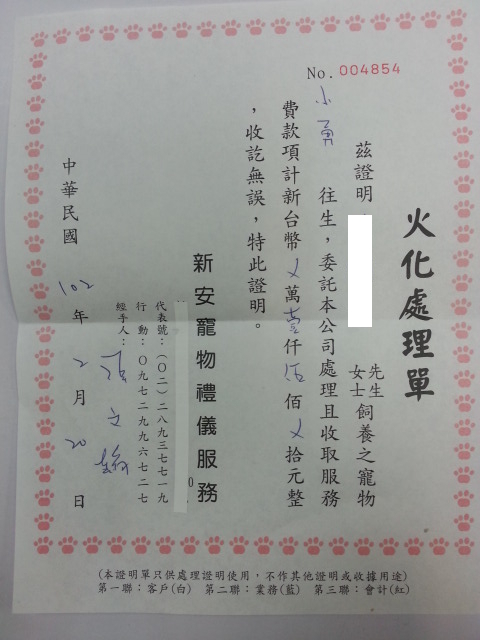 No. 004854
火化處理單
茲證明 先生女士飼養之寵物
小勇 往生，委託本公司處理且收取服務
費款項計新台幣ㄨ萬壹仟伍佰ㄨ拾元整
，收訖無誤，特此證明。
新安寵物禮儀服務
代表號：(０２)２８９３７７１９
行動：０９７２９９６７２７
經手人：
中華民國 102 年 2 月 20 日
(本證明單只供處理證明使用，不作其他證明或收據用途)
第一聯：客戶(白) 第二聯：業務(藍) 第三聯：會計(紅)